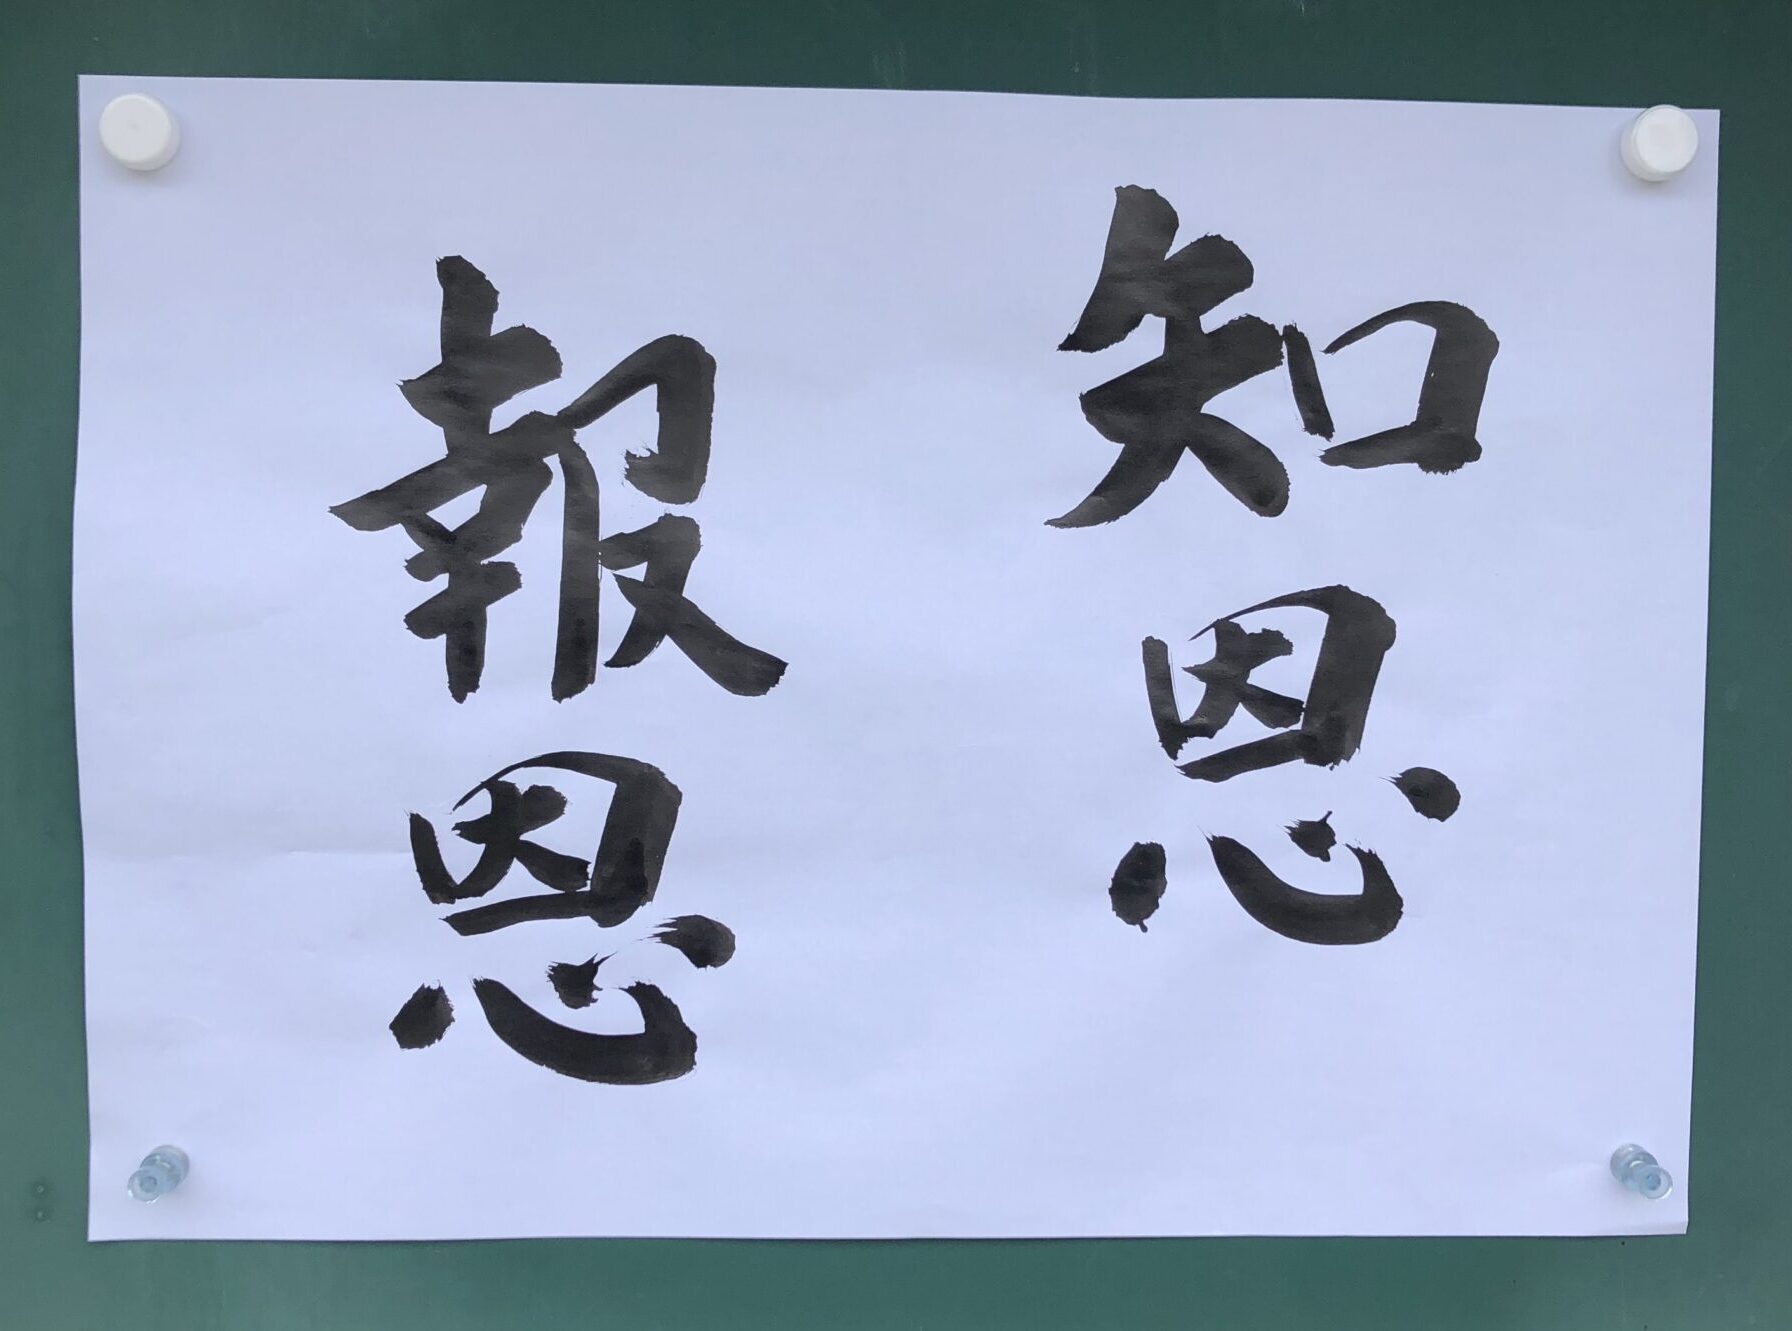 知恩
報恩